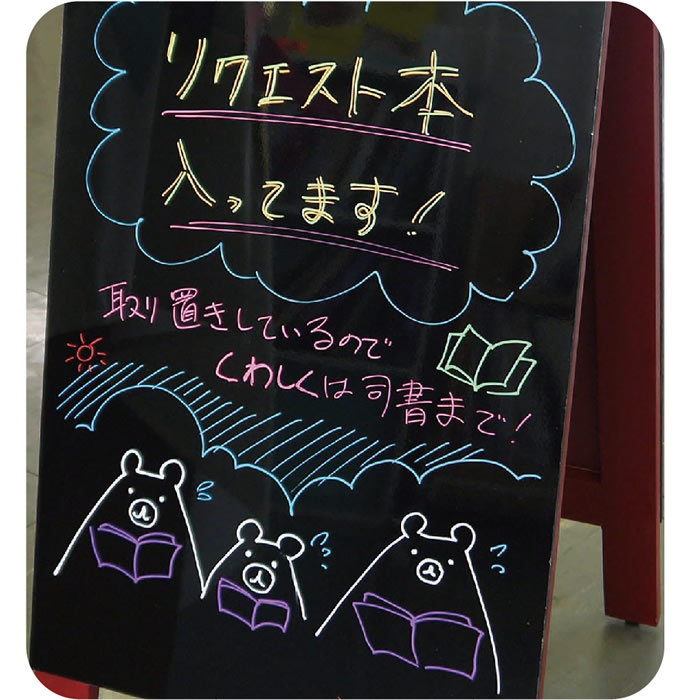 リクエスト本
入ってます!
取り置きしているので
くわしくは司書まで!